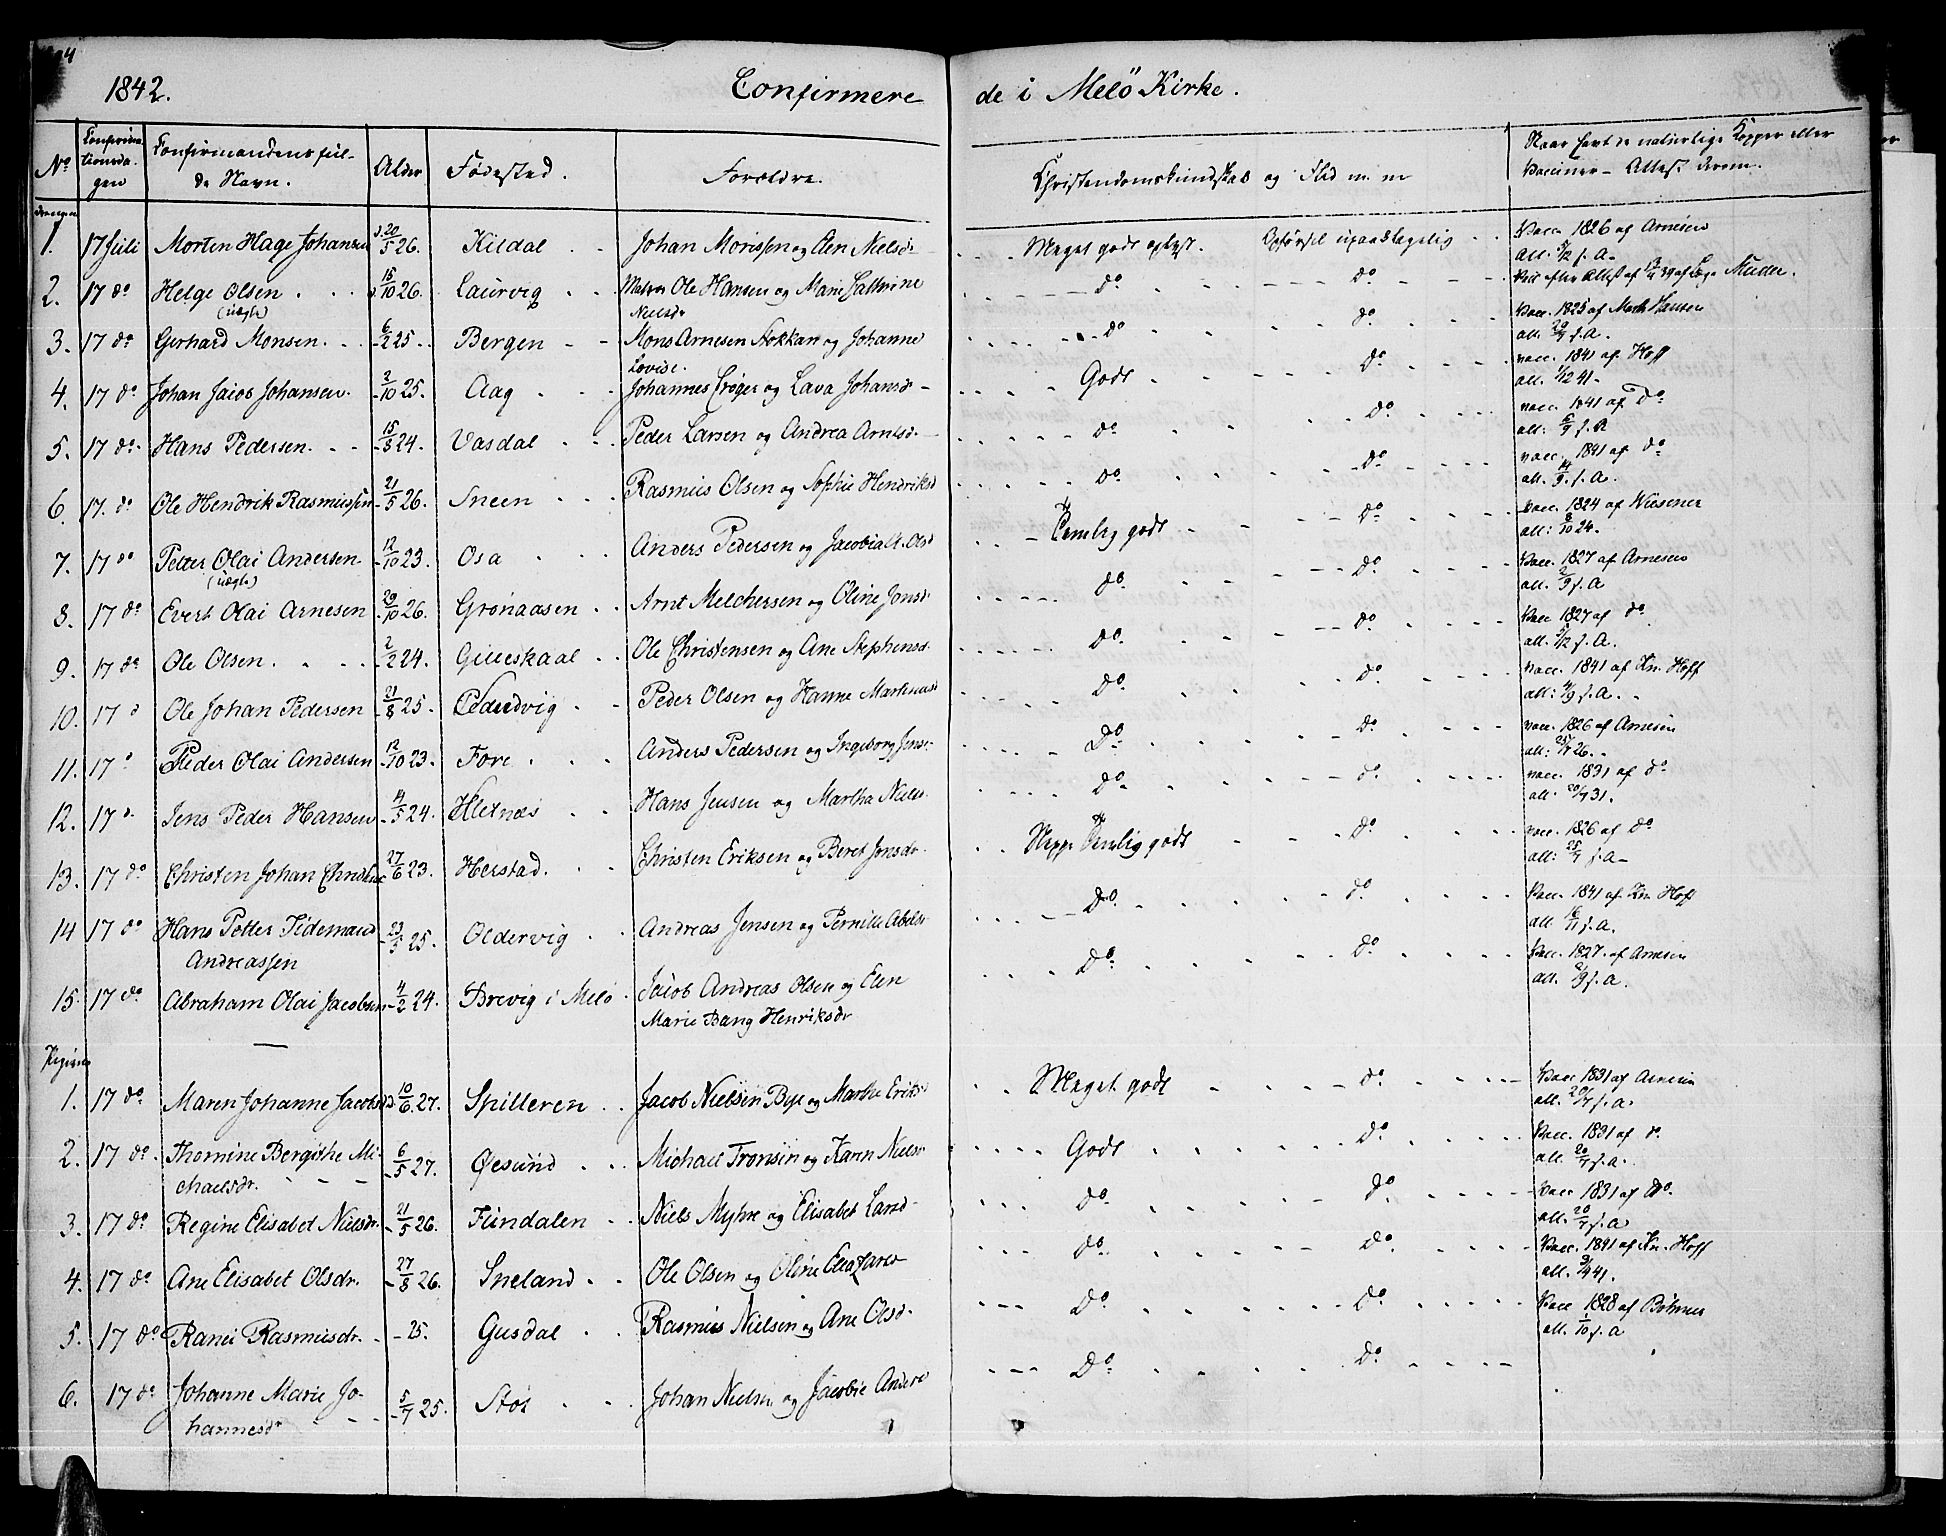 1842. Confirmerede i Melö Kirke.
No Confirmationsdagen Confirmandens fulde Navn. Alder Födested. Forældre. Christendomskundskab og Flid m. m Naar havt de naturlige Kopper eller Vacciner - Attest derom.
Drengene
1. 17 Juli Morten Hage Johansen 20/5 26. Kildal Johan Morissen og Elen Nielsdr Meget godt oplyst. Opförsel upaaklagelig Vacc. 1826 af Arnesen
att. 5/12 s. A.
2. 17 do Helge Olsen (uægte) 15/10 26. Laurvig Ole Hansen og Marie Cathrine Nielsdr do do
3. 17 do Gerhard Monsen. 6/2 25. Bergen Mons Arnesen Stokkan og Johanne Lovide. do do Vacc. 1825 af Mech Hansen
att. s. A.
4. 17 do Johan Jacob Johansen. 2/10 25. Aag Johannes Cröger og Lava Johansdr Godt do vacc. 1841 af Hoff
att. 1/12 41.
5. 17 do Hans Pedersen. 15/8 24. Vasdal Peder Larsen og Andrea Arntsd. do do vacc. 1841 af do
att: 6/9 s. A
6. 17. do Ole Hendrik Rasmussen 21/5 26. Sneen Rasmus Olsen og Sophie Hendriksd do do vacc. 1841 af do
att. 14/9. s. a.
7. 17 do Petter Olai Andersen (uægte) 12/10 23. Osa Anders Pedersen og Jacobia Olsd Temlig godt do vacc. 1824 af Wiesener
att: 8/10 24.
8. 17 do Evert Olai Arnesen 29/10 26. Grönaasen Arnt Melchersen og Oline Jonsd do do Vacc. 1827 af Arnesen
att. 2/9 s. A
9. 17 do Ole Olsen. 2/2 24. Gilleskaal Ole Christensen og Ane Stephensd. do do Vacc 1827 af do
att. 5/12 s. A.
10. 17 d Ole Johan Pedersen 21/8 25. Peder Olsen og Hanne Martinusd do do Vacc. 1841 af Kn. Hoff
att: 4/9 s. A.
11. 17 d Peder Olai Andersen 12/10 23. Fore Anders Pedersen og Ingeborg Jensd do do vacc. 1826 af Arnesen
att: 25/7 26.
12. 17 d. Jens Peder Hansen 4/5 24. Kletnæs Hans Jensen og Martha Nielsd. do do vacc. 1831 af do
att: 20/7 31.
13. 17 do Christen Johan Christens 27/6 23. Herstad. Christen Eriksen og Beret Jonsdr. Neppe Temlig godt do vacc. 1826 af do
att: 25/7 s. a
14 17 do Hans Petter Tidemand Andreassen 23/3 25. Oldervig Andreas Jensen og Pernille Abelsd do do Vacc. 1841 af Kn. Hoff
att. s. a.
15. 17 do. Abraham Olai Jacobsen 4/2 24. Brevig i Melö Jacob Andreas Olsen og Elen
Marie Bang Henriksdr do do Vacc. 1827. af Arnesen
att. s. a.
Pigerne
1. 17 do. Maren Johanne Jacobsd 10/6 27. Spilleren Jacob Nielsen Bye og Marthe Eriksd Meget godt do Vacc. 1831 af Arnesen
att. 20/7 s. a.
2. 17 do. Thomine Bergithe Michaelsdr. 6/5 27. Öesund Michael Tronsen og Karen Nielsd Godt do Vacc. 1831 af do.
att. 20/7 s. a.
3. 17 do Regine Elisabet Nielsdr. 21/5 26. Fundalen Niels Myhre og Elisabet Larsd do do Vacc 1831 af do.
att. 20/7 s. a
4. 17 do Ane Elisabet Olsdr. 27/8 26. Sneland Ole Olsen og Oline Eleazarsd do do Vacc. 1841 af Kn. Hoff
att. 41.
5. 17 do Ranei Rasmusdr. 25. Gusdal Rasmus Nielsen og Ane Olsd. do do Vacc 1828 af Böhmer
att. 1/10 s. a
6. 17 do Johanne Marie Johannesdr 5/7 25. Stöt Johan Nielsen og Jacobie Andersd do do